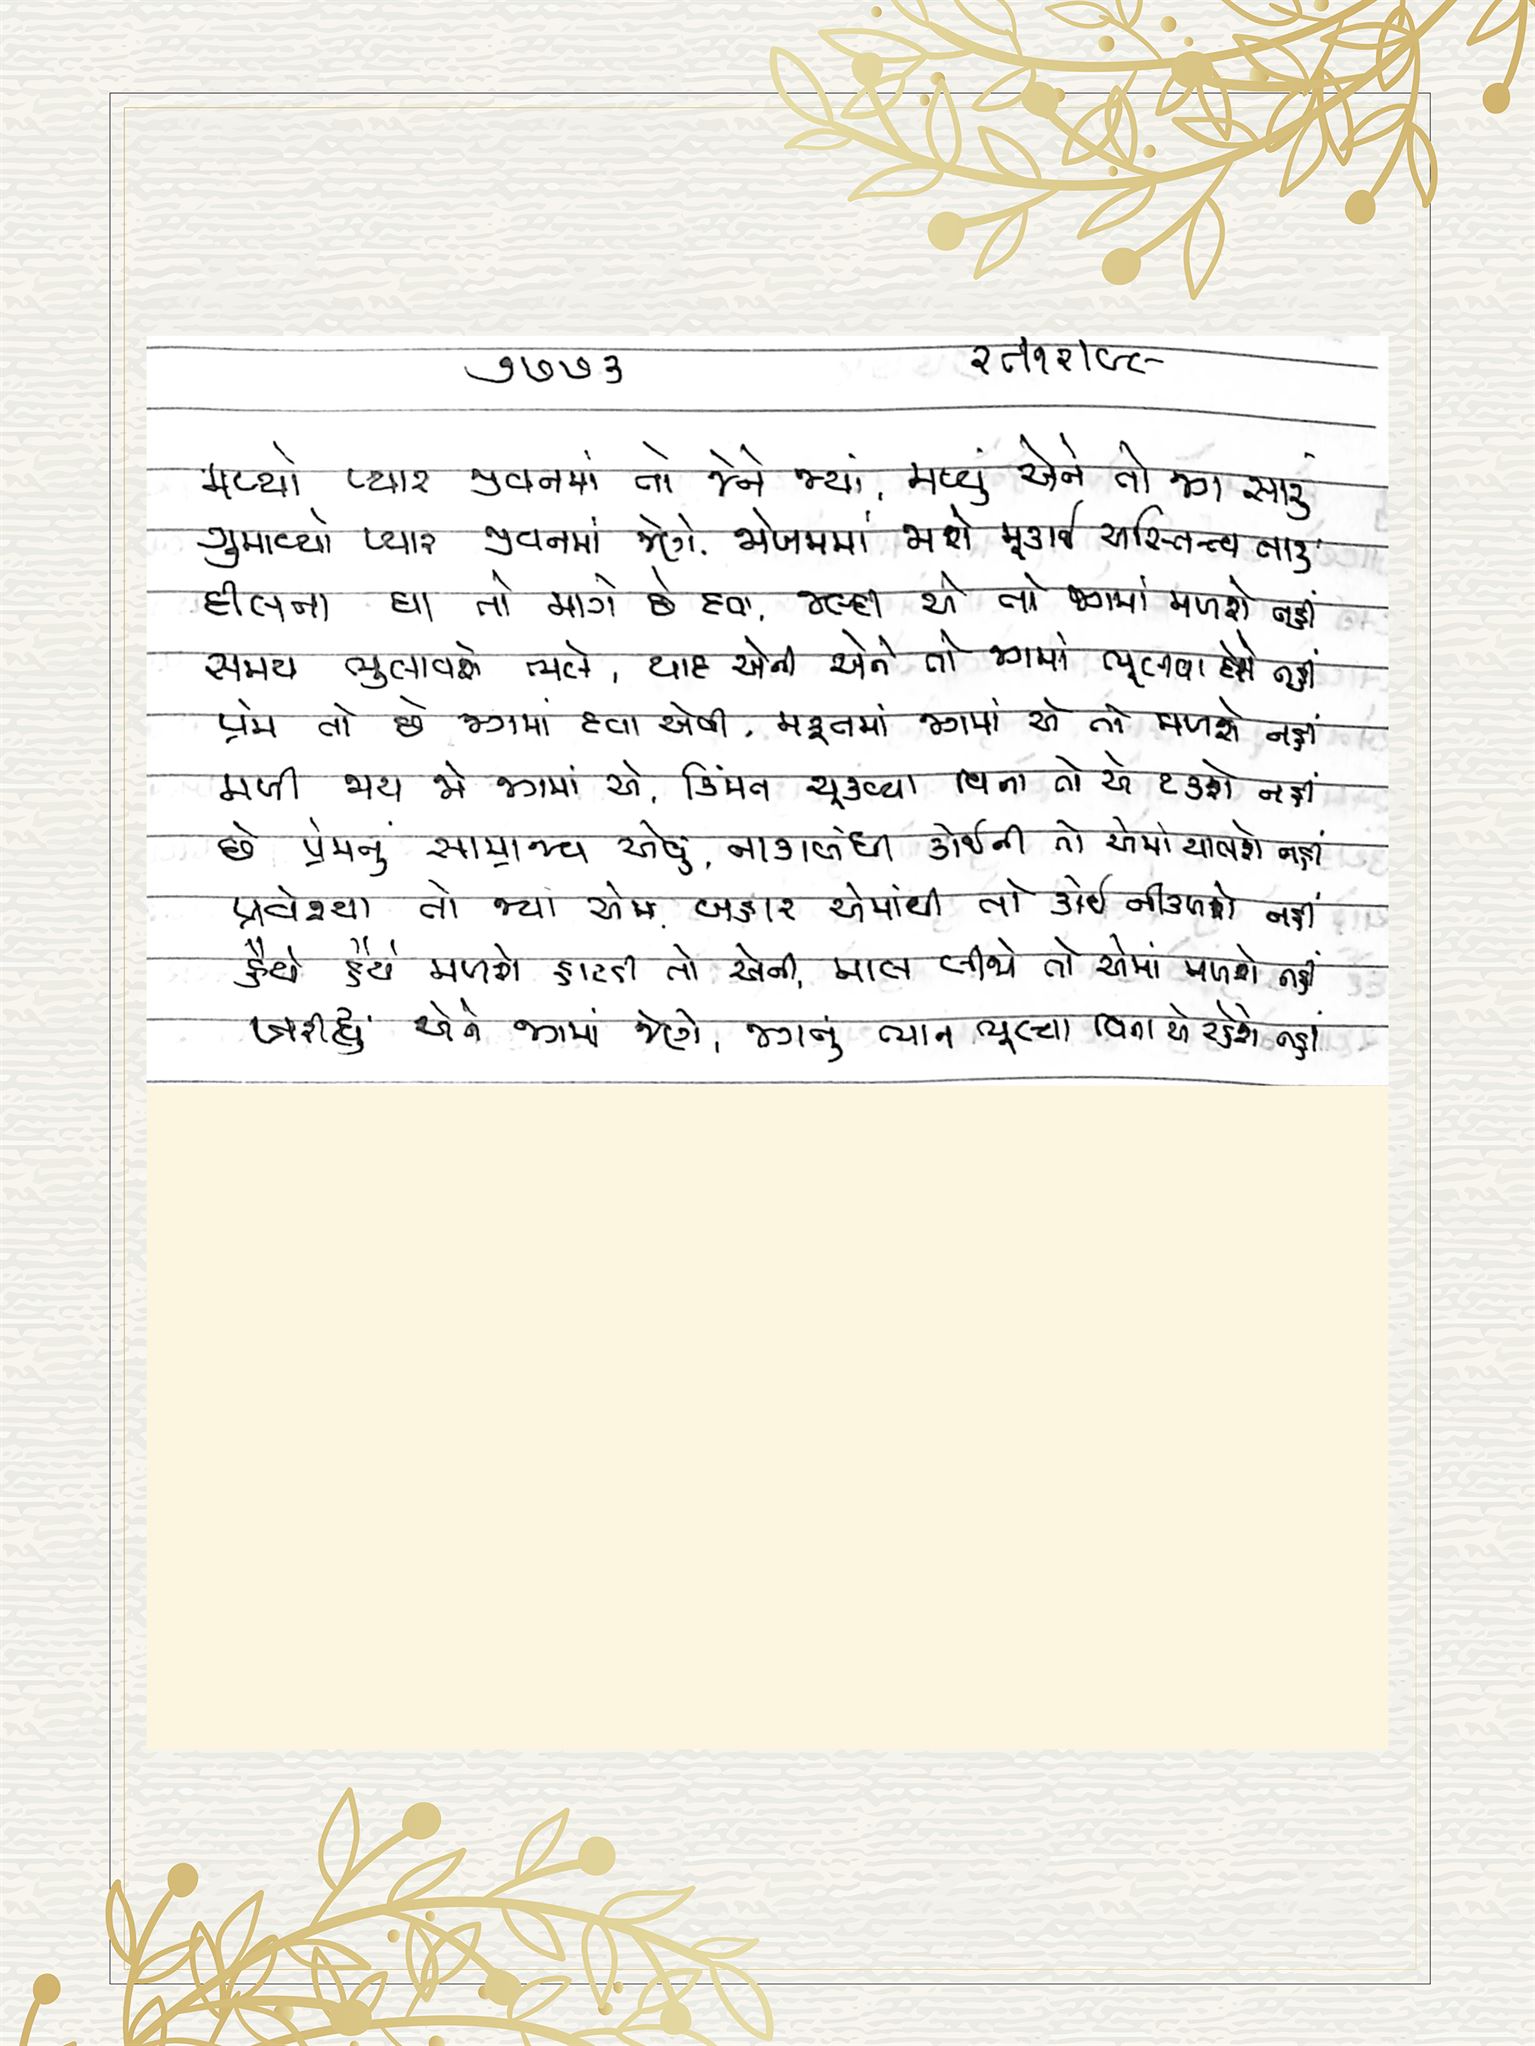 ૭૭૭૩
મળ્યો પ્યાર જીવનમાં તો જેને જ્યાં, મળ્યું એને તો જગ સારું
ગુમાવ્યો પ્યાર જીવનમાં જેણે. જોખમમાં મુકાઈ અસ્તિત્ત્વ તારું
દીલના ઘા તો માગે છે દવા, જલ્દી એ તો જગમાં મળશે નહીં
સમય ભુલાવશે ભલે, યાદ એની એને તો જગમાં ભૂલવા દેશે નહીં
પ્રેમ તો છે જગમાં દવા એવી. મફતમાં જગમાં એ તો મળશે નહીં
મળી જાય જો જગમાં એ, કિંમત ચૂકવ્યા વિના તો એ ટકશે નહીં
છે પ્રેમનું સામ્રાજ્ય એવું, નાકાબંધી કોઈની તો એમાં ચાલશે નહીં
પ્રવેશ્યા તો જ્યાં એમાં, બહાર એમાંથી તો કોઈ નીકળશે નહીં
હૈયે હૈયે મળશે હાટડી તો એની, માલ બીજો તો એમાં મળશે નહીં
ખરીદ્યું એને જગમાં જેણે, જગનું ભાન ભૂલ્યા વિના એ રહેશે નહીં